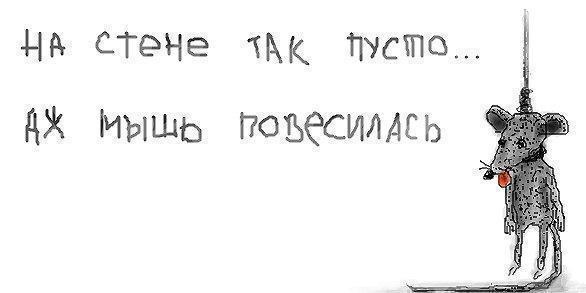 на стене так пусто...
аж мышь повесилась